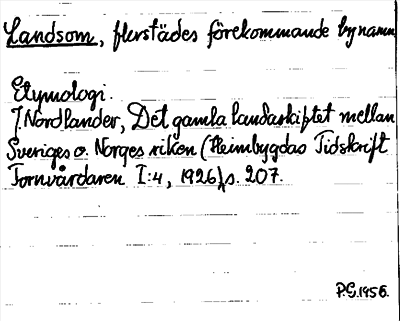 Landsom, flerstädes förekommande bynamn
Etymologi.
J. Nordlander, Det gamla landaskiftet mellan
Sveriges o. Norges riken (Heimbygdas Tidskrift
Fornvårdaren I:4, 1926), s. 207.
P.G.1956.